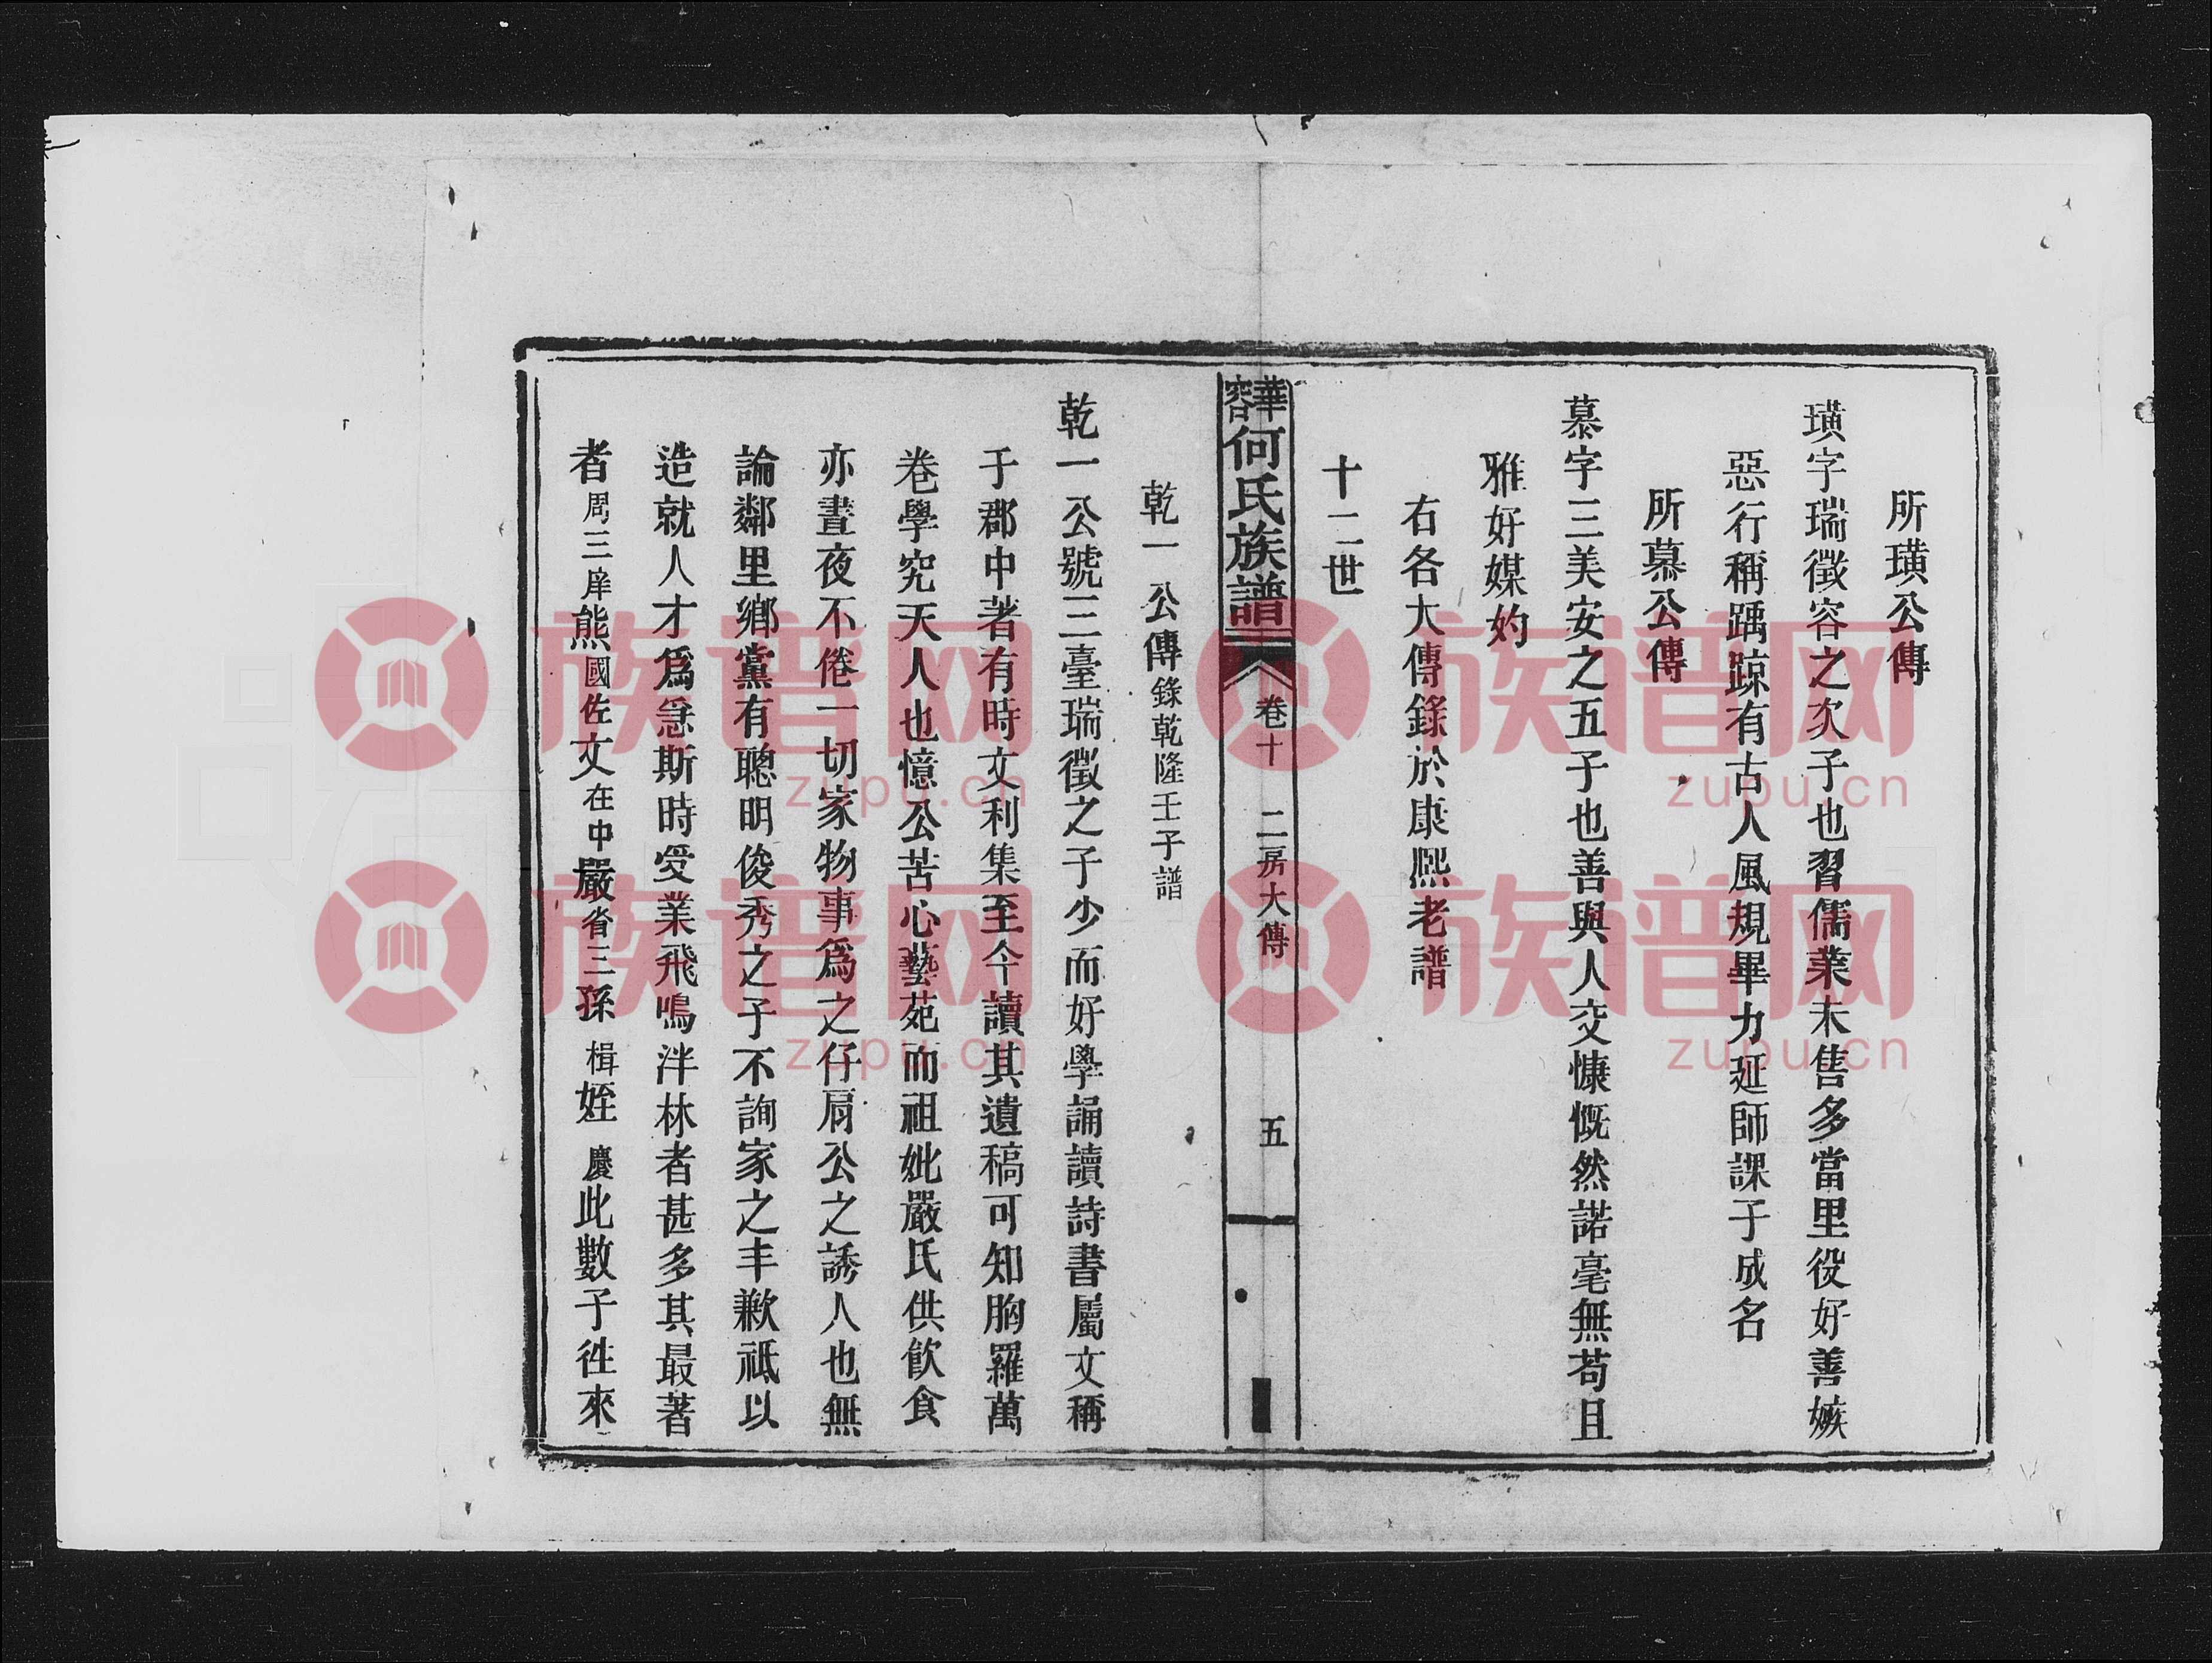 所璜公傳
璜字瑞徵容之次子也習儒業未售多當里役好善嫉
惡行稱踽踉有古人風規畢力延師課子成名
所慕公傳
慕字三美安之五子也善與人交慷慨然諾毫無苟且
雅好媒妁
右各大傳錄於康熙老譜
十二世
華容何氏族譜 卷十 二房大傳 五
乾一公傳錄乾隆壬子譜
乾一公號三臺瑞徵之子少而好學誦讀詩書屬文稱
于郡中著有時文利集至今讀其遺稿可知胸羅萬
卷學究天人也憶公苦心藝苑而祖妣嚴氏供飲食
亦晝夜不倦一切家物事爲之仔肩公之誘人也無
論鄰里鄉黨有聰明俊秀之子不詢家之丰歉祗以
造就人才爲急斯時受業飛鳴泮林者甚多其最著
者周三庠熊國佐文在中嚴省三孫楫姪慶此數子徃來
族谱网
zupu.cn
族谱网
zupu.cn
族谱网
zupu.cn
族谱网
zupu.cn